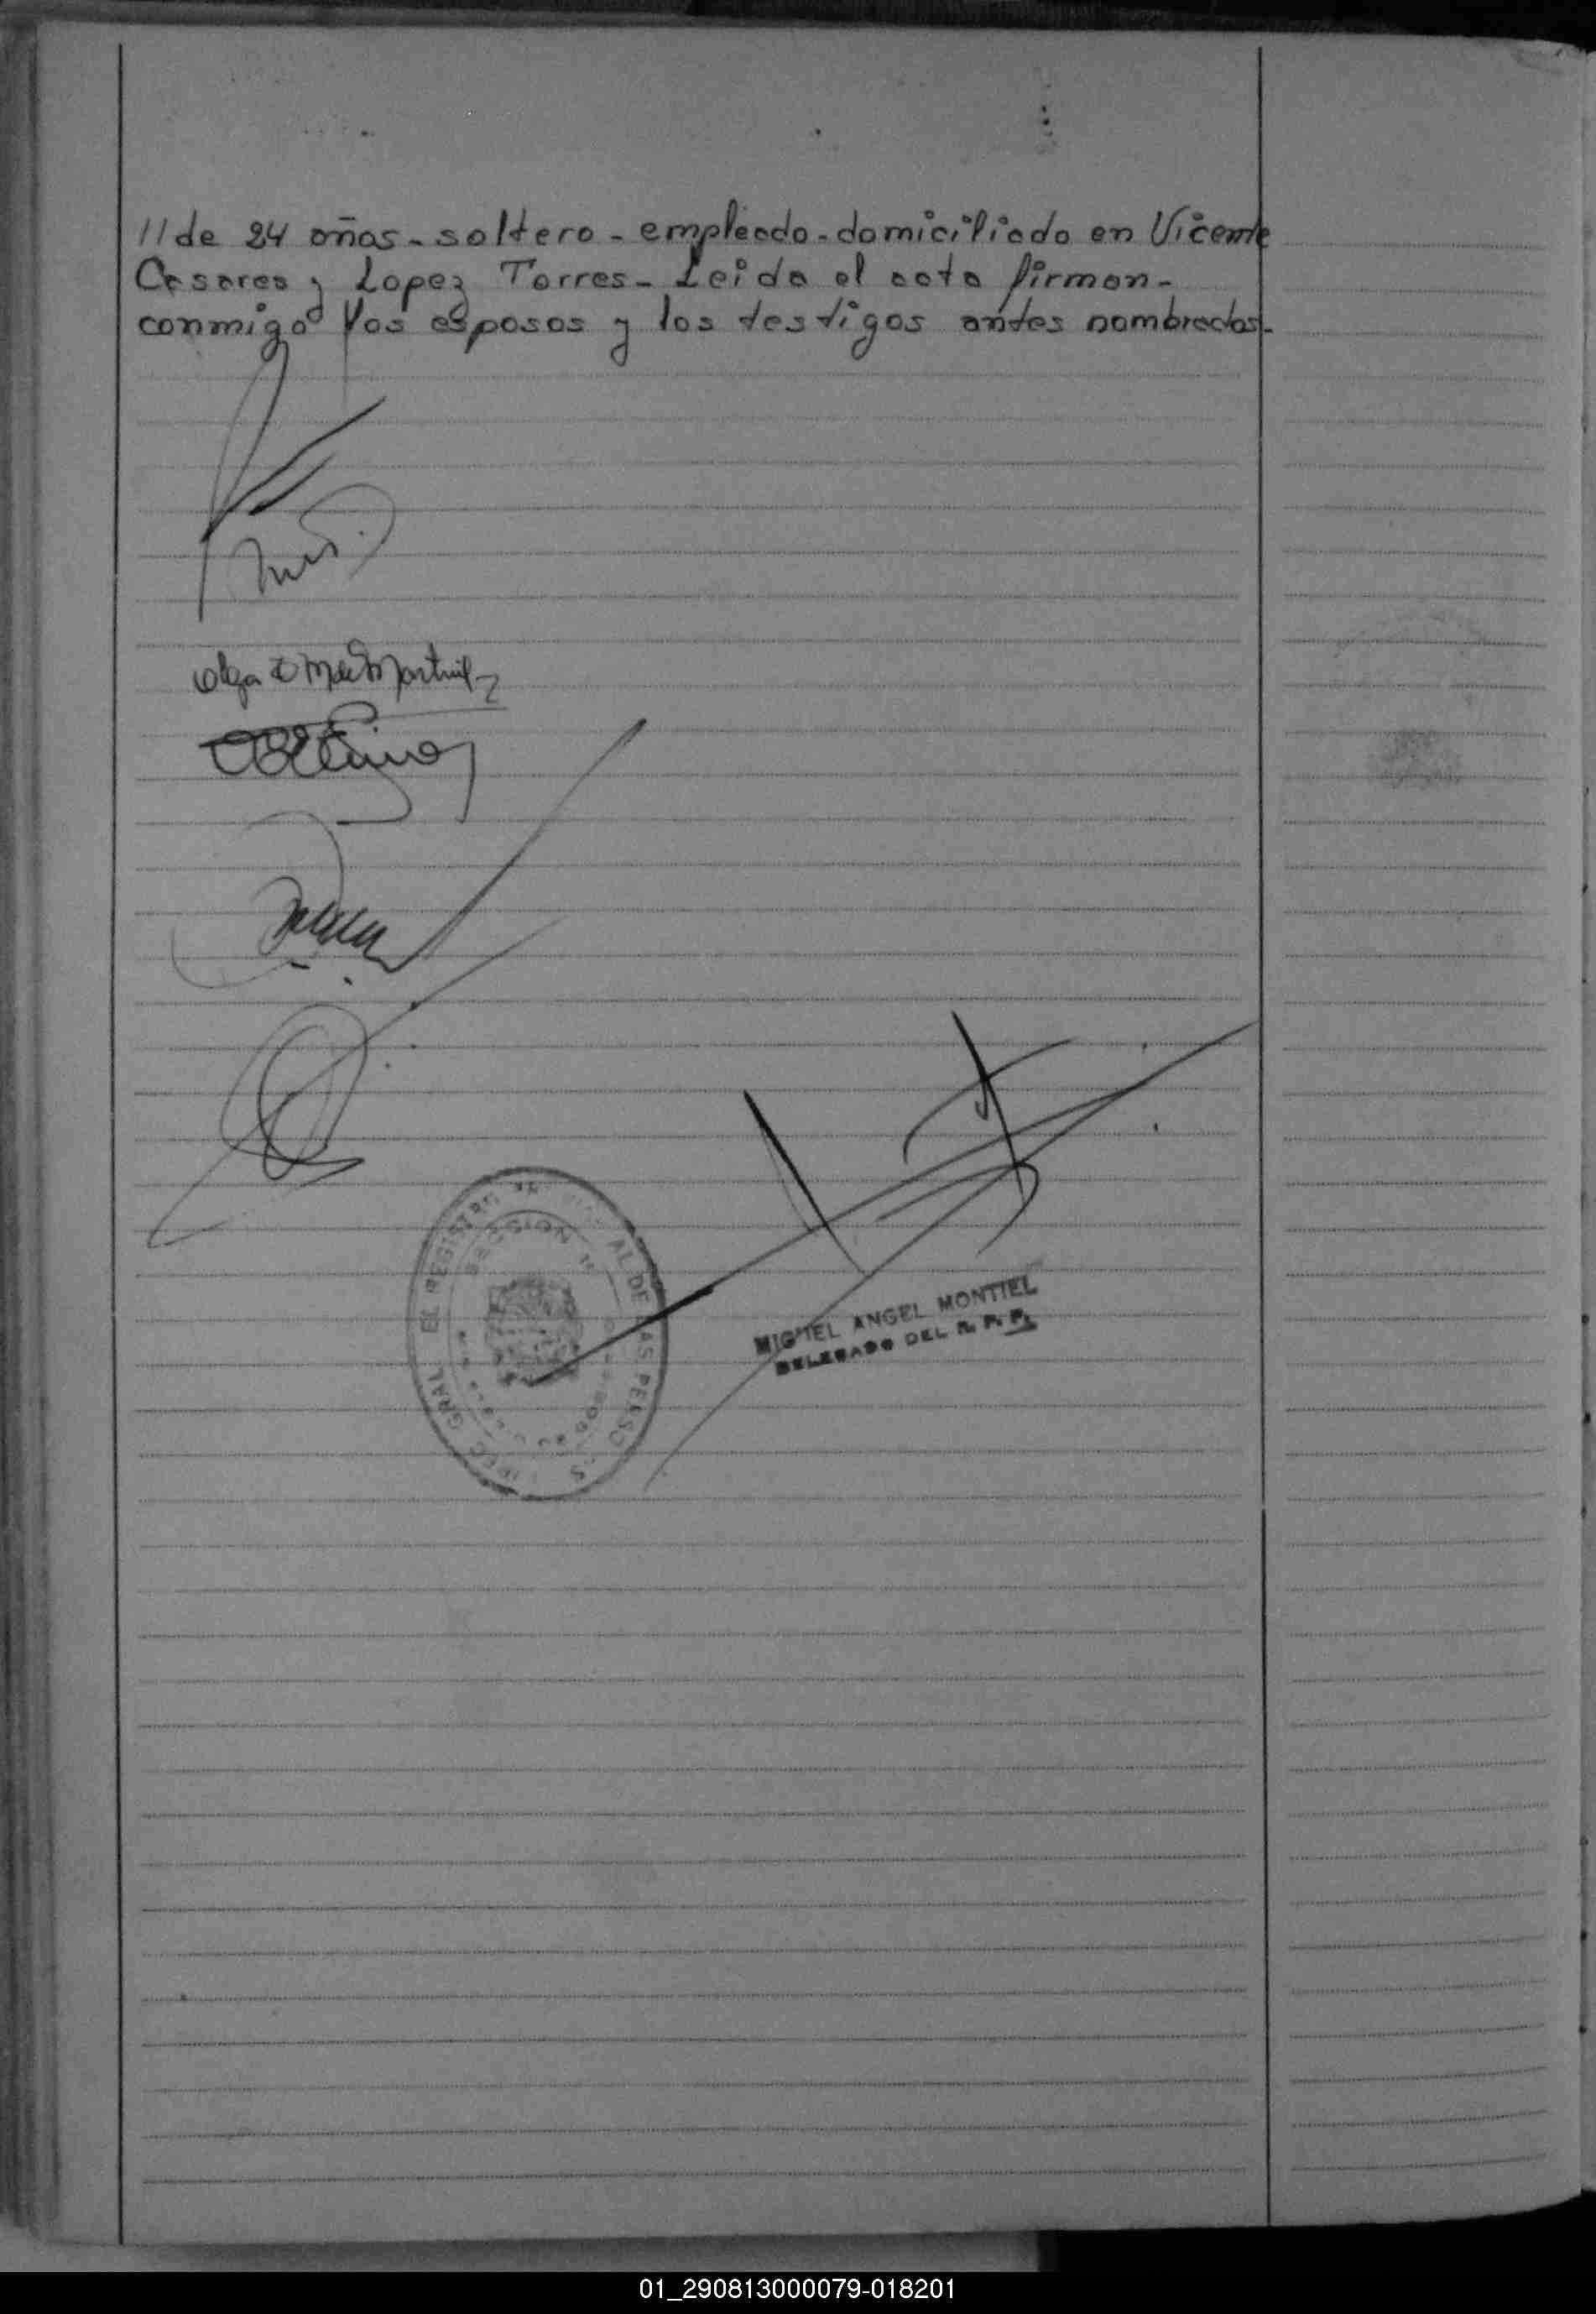 // de 24 años - soltero - empleado - domiciliado en Vicente
Casares y Lopez Torres - Leida el acta firman -
conmigo los esposos y los testigos antes nombrados -
Olga
EL REGISTRO AL DE LAS PERSO S
GRAL
SECCION
MIGUEL ANGEL MONTIEL
DELEGADO DEL R. P. P.
01_290813000079-018201